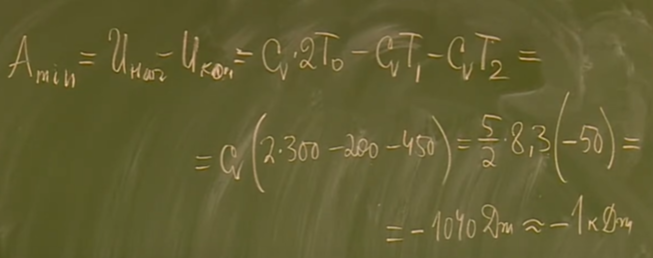 A_min = U_нач - U_кон = C_V·2T_0 - C_VT_1 - C_VT_2 =
= C_V(2·300 - 200 - 450) = 5/2·8,3(-50) =
= -1040 Дж ≈ -1 кДж